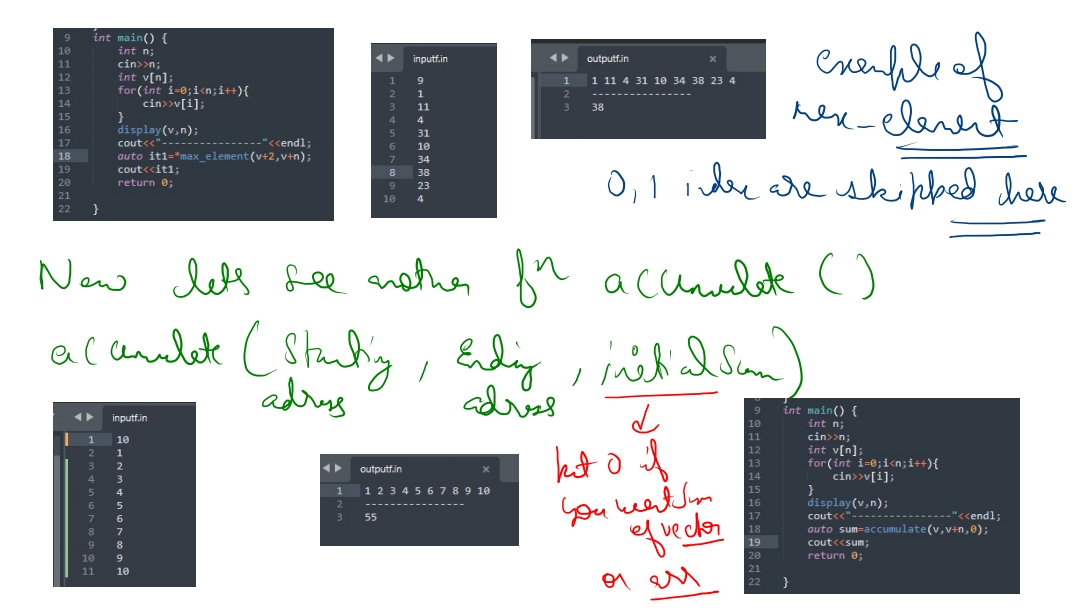 9 int main() {
10 int n;
11 cin>>n;
12 int v[n];
13 for(int i=0;i<n;i++){
14 cin>>v[i];
15 }
16 display(v,n);
17 cout<<"----------------"<<endl;
18 auto it1=*max_element(v+2,v+n);
19 cout<<it1;
20 return 0;
21
22 }
inputf.in
1 9
2 1
3 11
4 4
5 31
6 10
7 34
8 38
9 23
10 4
outputf.in ×
1 1 11 4 31 10 34 38 23 4
2 ----------------
3 38
example of
max-element
0,1 index are skipped here
Now lets see another fn accumulate ()
accumulate (Starting , Ending , initial Sum)
adress adress
inputf.in
1 10
2 1
3 2
4 3
5 4
6 5
7 6
8 7
9 8
10 9
11 10
outputf.in ×
1 1 2 3 4 5 6 7 8 9 10
2 ----------------
3 55
put 0 if
you want sum
of vector
or arr
9 int main() {
10 int n;
11 cin>>n;
12 int v[n];
13 for(int i=0;i<n;i++){
14 cin>>v[i];
15 }
16 display(v,n);
17 cout<<"----------------"<<endl;
18 auto sum=accumulate(v,v+n,0);
19 cout<<sum;
20 return 0;
21
22 }